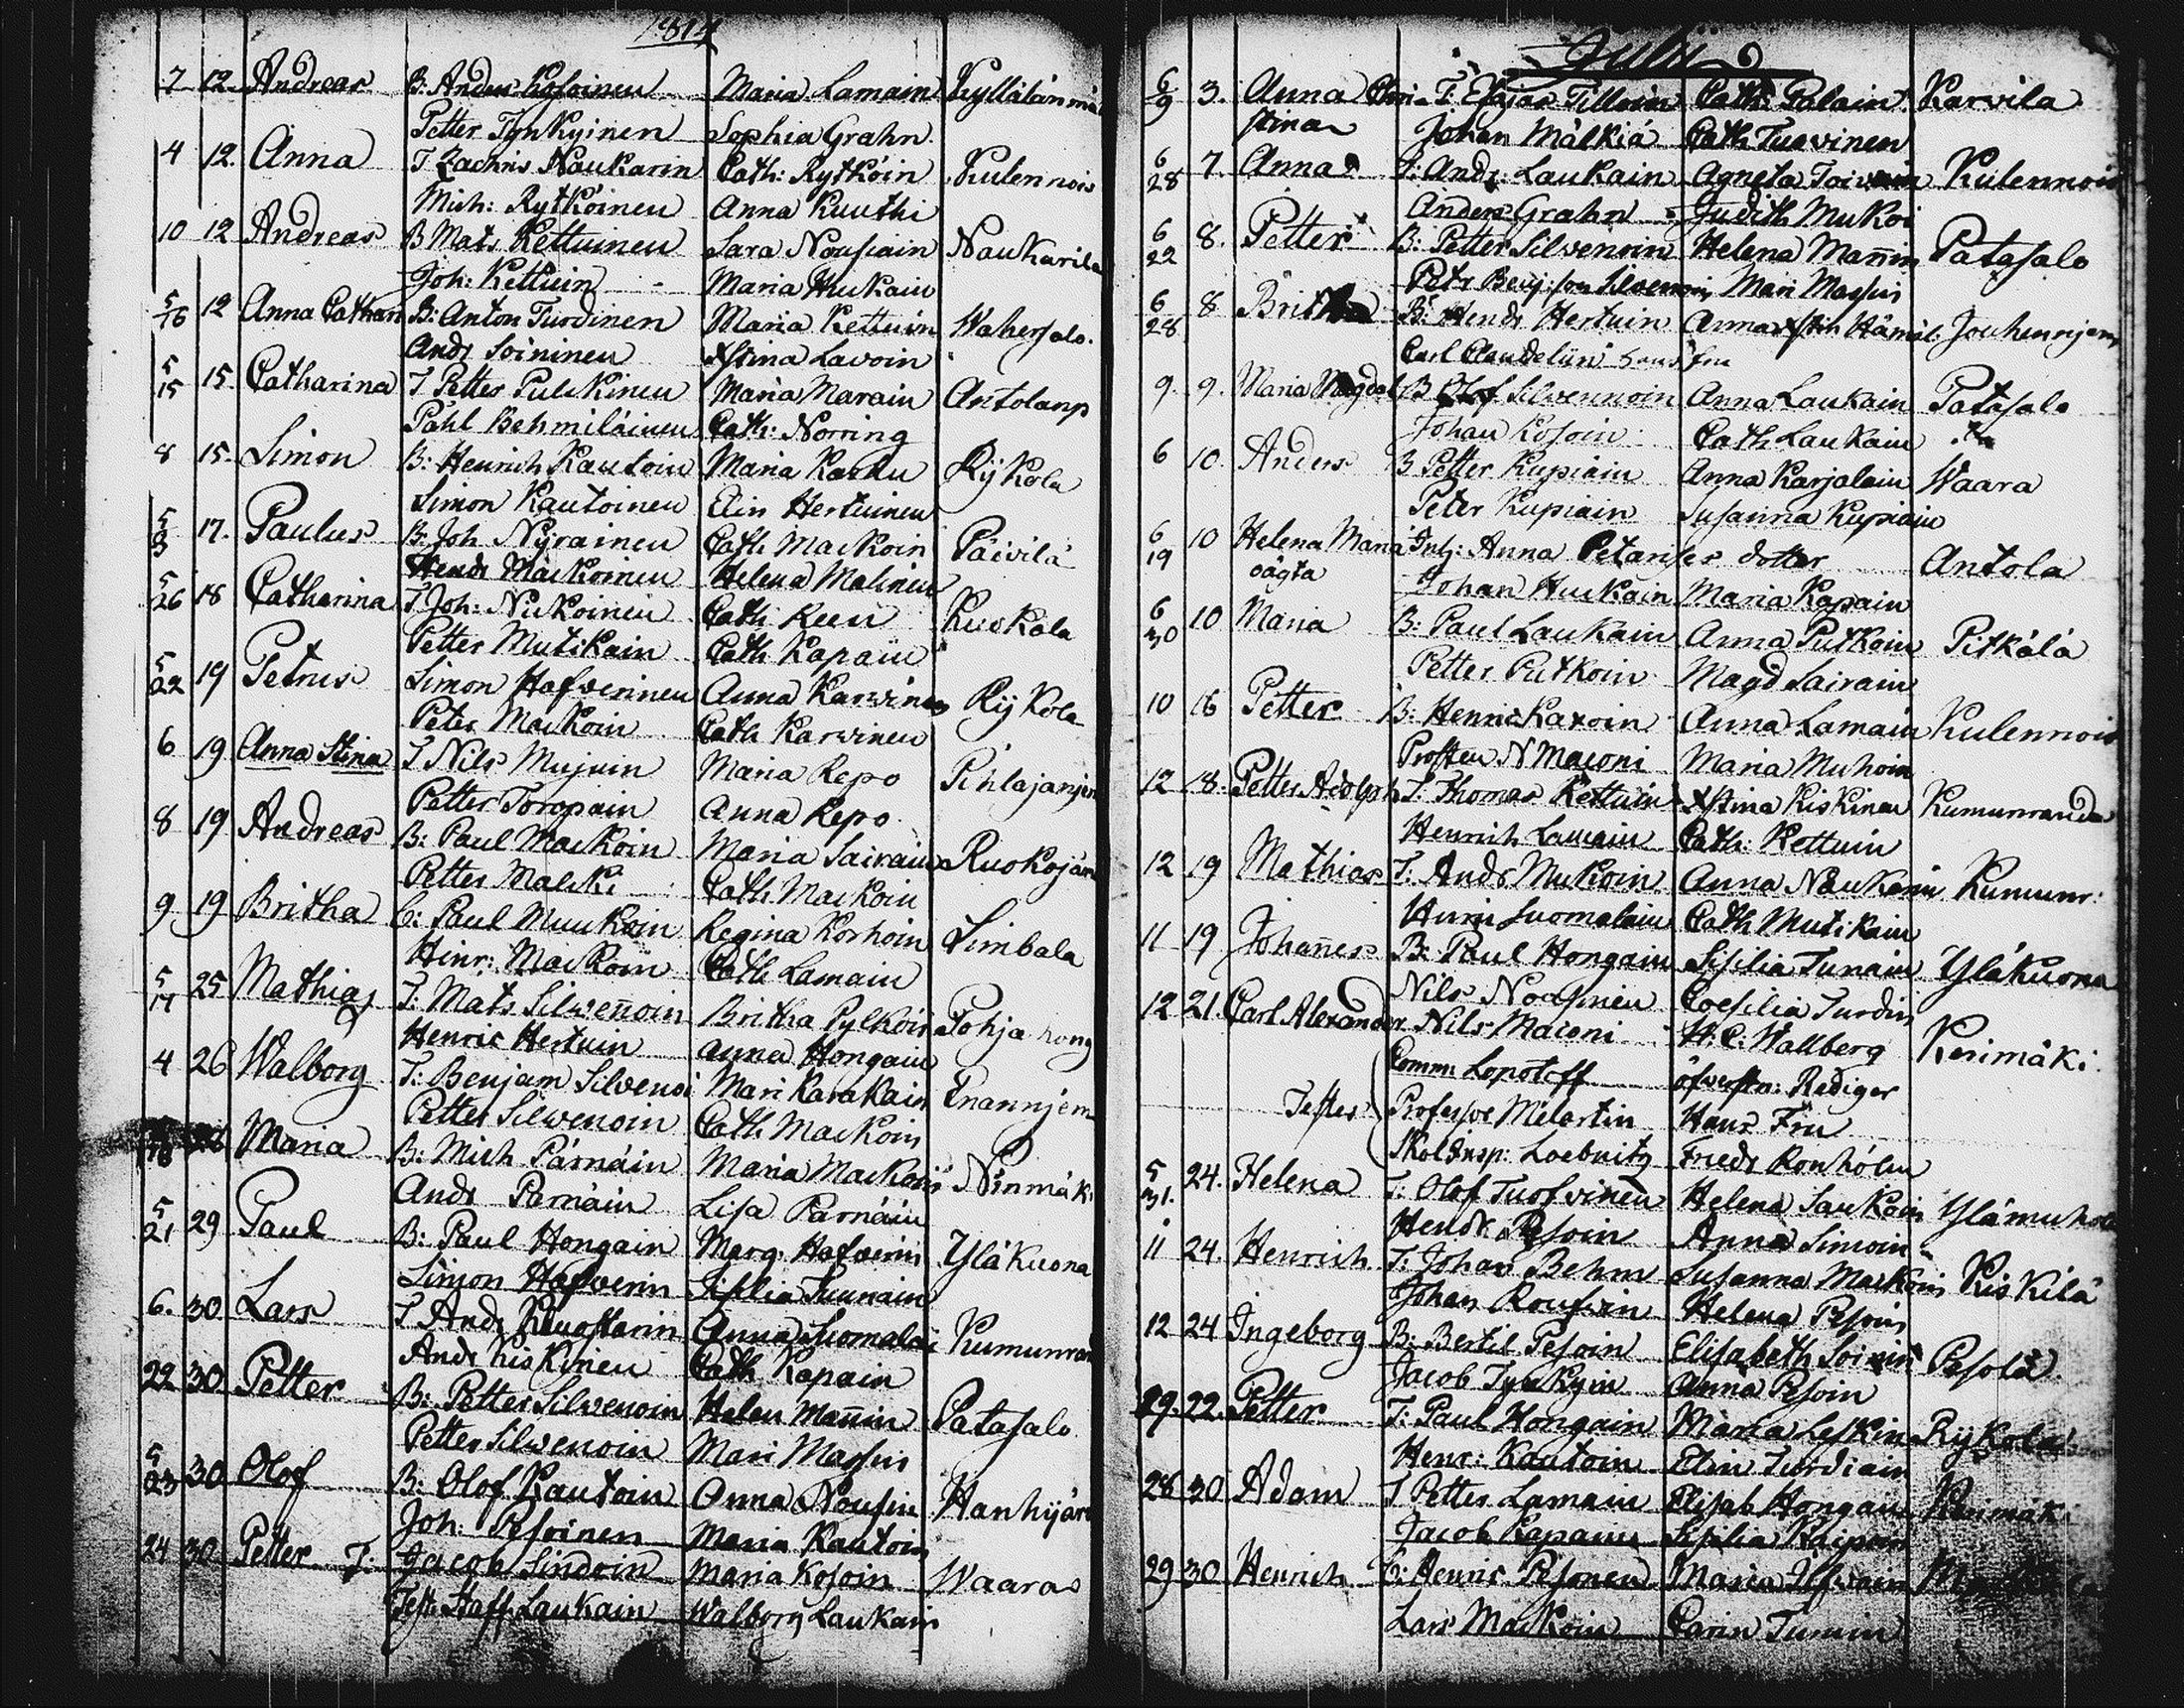 1814
7 12 Andreas B: Anders Kosoinen Maria Lamain Kyllälänmä
Petter Tynkyinen Sophia Grahn
4 12. Anna T Zachris Naukarin Cath: Rytköin Kulennois
Mich: Rytköinen Anna Kuuthi
10 12 Andreas B Mats Kettuinen Sara Nousiain Naukarila
Joh: Kettuin Maria Hukain
5/16 12 Anna Cathar B: Anton Turdinen Maria Kettuin Wahersalo.
Andr Soininen Xstina Lavoin
5/15 15 Catharina T Petter Pulckinen Maria Marain Antolanp
Påhl Behmiläinen Cath: Norring
8 15. Simon B: Henrich Kautoin Maria Karhu Rijkola
Simon Kautoinen Elin Hertuinen
5/3 17. Paulus B: Joh Nyrainen Cath Mackoin Päivilä
Hendr Mäckoinen Helena Malinen
5/26 18 Catharina T Joh: Nukoinen Cath Keen Ruokola
Petter Mutikain Cath Kapain
5/22 19 Petrus Simon Hafverinen Anna Karvinen Rijkola
Peter Mackoin Cath Karvinen
6 19 Anna Stina T Nils Mujuin Maria Repo Pihlajanjem
Petter Toropain Anna Repo
8 19 Andreas B: Paul Mackoin Maria Sairain Ruokojär
Petter Malcki Cath Mackoin
9 19 Britha C: Paul Muukoin Regina Korhoin Simbala
Hinr: Mackoin Cath Lamain
5/17 25 Mathias T: Mats Silwenoin Britha Pylköin Pohja hong
Henric Hertuin Anna Hongain
4 26 Walborg T: Benjam Silvenoi Mari Karakain Enannjem
Petter Silwenoin Cath Mackoin
Maria B: Mich Pärnäin Maria Mackoin Ninmäk
Andr Parnäin Lisa Parnäin
5/21 29 Paul B: Paul Hongain Marg: Hafverin Yläkuona
Simon Hafverin Sisilia Tuunain
6. 30 Lars T Andr Anna Suomalai Kumunran
Andr Kiskinen Cath Kapain
22 30 Petter B: Petter Silvenoin Helen Mannin Patasalo
Petter Silwenoin Mari Massin
5/23 30 Olof B: Olof Kautoin Anna Nousin Hanhijär
Joh: Pesoinen Maria Kautoin
24 30 Petter T: Jacob Sindoin Maria Kosoin Waaras
Test: Staff Laukain Walborg Laukain
Julii
6/9 3. Anna Chri= T. Esaias Tilloin Cath: Palain Karvila
stina Johan Mälkiä Cath Tuovinen
6/28 7. Anna T: Andr: Laukain Agneta Toivoin Kulennois
Anders Grahn Judith Mukoi
6/22 8. Petter B: Petter Silvenoin Helena Mannin Patasalo
Petr Benj:son Silvenoin Mari Massin
6/28 8 Britha B: Hendr Hertuin Anna Xstin Hämäl: Jouhennjem
Carl Clandelin hans fru
9. 9. Maria Magdal B Olof Silvennoin Anna Laukain Patasalo
Johan Kosoin Cath Laukain
6 10. Anders B Petter Kupiain Anna Karjalain Waara
Peter Kupiain Susanna Kupiain
6/19 10 Helena Maria Inh: Anna Petari dotter Antola
oägta Johan Huckain Maria Kapain
6/30 10 Maria B: Paul Laukain Anna Putkoin Pitkälä
Petter Putkoin Magd Sairain
10 16 Petter B: Henric Kaxoin Anna Lamain Kulennois
Prosten N Maconi Maria Muhoin
12 18. Petter Adolph T. Thomas Kettuin Xstina Kiskinen Kumunranda
Henrich Lamain Cath: Kettuin
12 19 Mathias T: Andr Mukoin Anna Naukarin Kumunr:
Henric Suomalain Cath Mutikain
11 19 Johannes B: Paul Hongain Sisilia Tunain Yläkuona
Nils Nousinen Coesilia Turdin
12 21. Carl Alexander Nils Maconi H: C: Wallberg Kerimäki
Comm: Lopotoff öfverstn: Rediger
Testes Professor Melartin Hans Fru
Skolinsp: Loebnitz Friedr Ronholm
5/31. 24. Helena T: Olof Tuofvinen Helena Saukoin Ylämuhola
Hendr Pesoin Anna Simoin
11 24. Henrich T: Johan Behm Susanna Mackoin Kiskilä
Johan Rousvin Helena Pesoin
12 24 Ingeborg B: Bertil Pesoin Elisabeth Soinin Pesola
Jacob Tynkyin Anna Pesoin
29. 22. Petter T: Paul Hongain Maria Leskin Rijkola
Henr: Kautoin Elin Turdiain
28 30 Adam T Petter Lamain Elisab Hongain Kerimäk
Jacob Kapain Sisilia Kaipoin
29 30 Henrich C: Henric Pesonen Maria
Lars Mackoin Carin Turuin